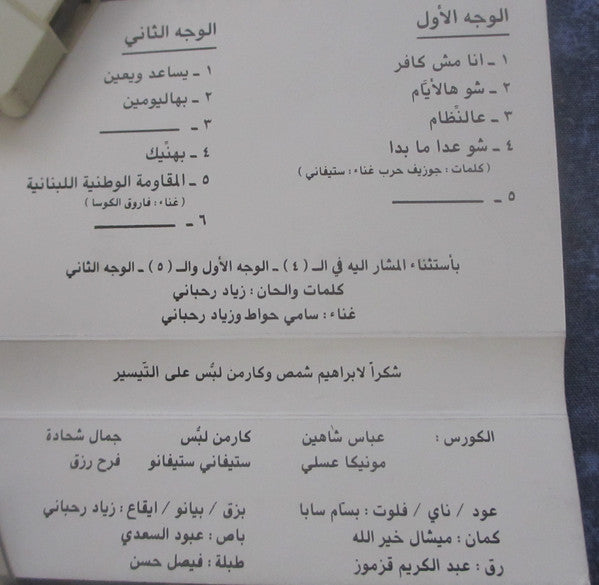 الوجه الأول
١ ـ انا مش كافر
٢ ـ شو هالأيّام
٣ ـ عالنّظام
٤ ـ شو عدا ما بدا
( كلمات : جوزيف حرب غناء : ستيفاني )
٥ ـ
الوجه الثاني
١ ـ يساعد ويعين
٢ ـ بهاليومين
٣ ـ
٤ ـ بهنّيك
٥ ـ المقاومة الوطنية اللبنانية
( غناء : فاروق الكوسا )
٦ ـ
بأستثناء المشار اليه في الـ ( ٤ ) ـ الوجه الأول والـ ( ٥ ) ـ الوجه الثاني
كلمات والحان : زياد رحباني
غناء : سامي حواط وزياد رحباني
شكراً لابراهيم شمص وكارمن لبّس على التّيسير
الكورس : عباس شاهين كارمن لبّس جمال شحادة
مونيكا عسلي ستيفاني ستيفانو فرح رزق
عود / ناي / فلوت : بسّام سابا بزق / بيانو / ايقاع : زياد رحباني
كمان : ميشال خير الله باص : عبود السعدي
رق : عبد الكريم قزموز طبلة : فيصل حسن